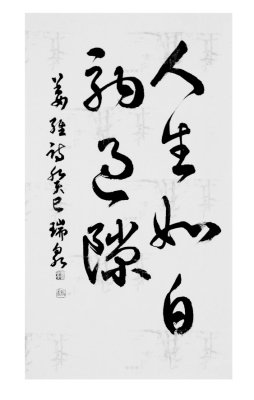 人生如白
駒過隙
姜維詩癸巳瑞泉